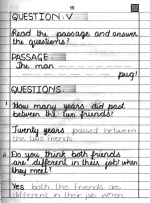 QUESTION: V
Read the passage and answer
the questions?
PASSAGE:
The man
pug!
QUESTIONS:
How many years did past
between the two friends?
Twenty years passed between
the two friends
Do you think both friends
are different in their job? when
they meet?
Yes both the friends are
different in their job when